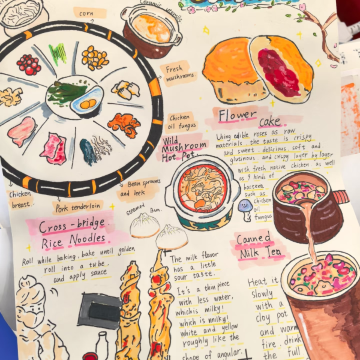 corn
Fresh
mushrooms
Chicken
oil fungus
Bean sprouts
and leek
Pork tenderloin
Chicken
breast
Wild
Mushroom
Hot Pot
Flower
cake
Using edible roses as raw
materials, the taste is crispy
and sweet, delicious, soft and
glutinous, and crispy layer by layer
with fresh
as well
as 8 kinds of
such as
fungus
Cross-bridge
Rice Noodles
Roll while baking, bake until golden,
roll into a tube,
and apply sauce
steamed bun
The milk flavor
has a little
sour taste.
It's a thin piece
with less water,
which is milky!
which is milky!
white and yellow
roughly like the
shape of angular
Canned
Milk Tea
Heat it
slowly
with a
clay pot
and warm
fire, drink
the